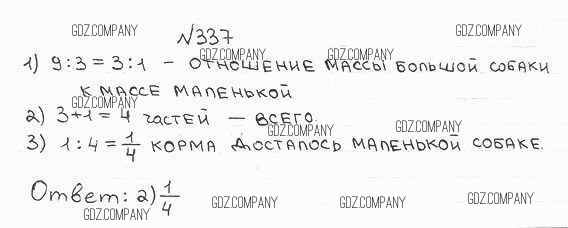 GDZ.COMPANY GDZ.COMPANY
№337 GDZ.COMPANY
GDZ.COMPANY GDZ.COMPANY GDZ.COMPANY
1) 9:3 = 3:1 – ОТНОШЕНИЕ МАССЫ БОЛЬШОЙ СОБАКИ
К МАССЕ МАЛЕНЬКОЙ
GDZ.COMPANY
2) 3+1 = 4 ЧАСТЕЙ – ВСЕГО.
GDZ.COMPANY GDZ.COMPANY
3) 1:4 = 1/4 КОРМА ДОСТАЛОСЬ МАЛЕНЬКОЙ СОБАКЕ.
Ответ: 2) 1/4
GDZ.COMPANY GDZ.COMPANY GDZ.COMPANY GDZ.COMPANY